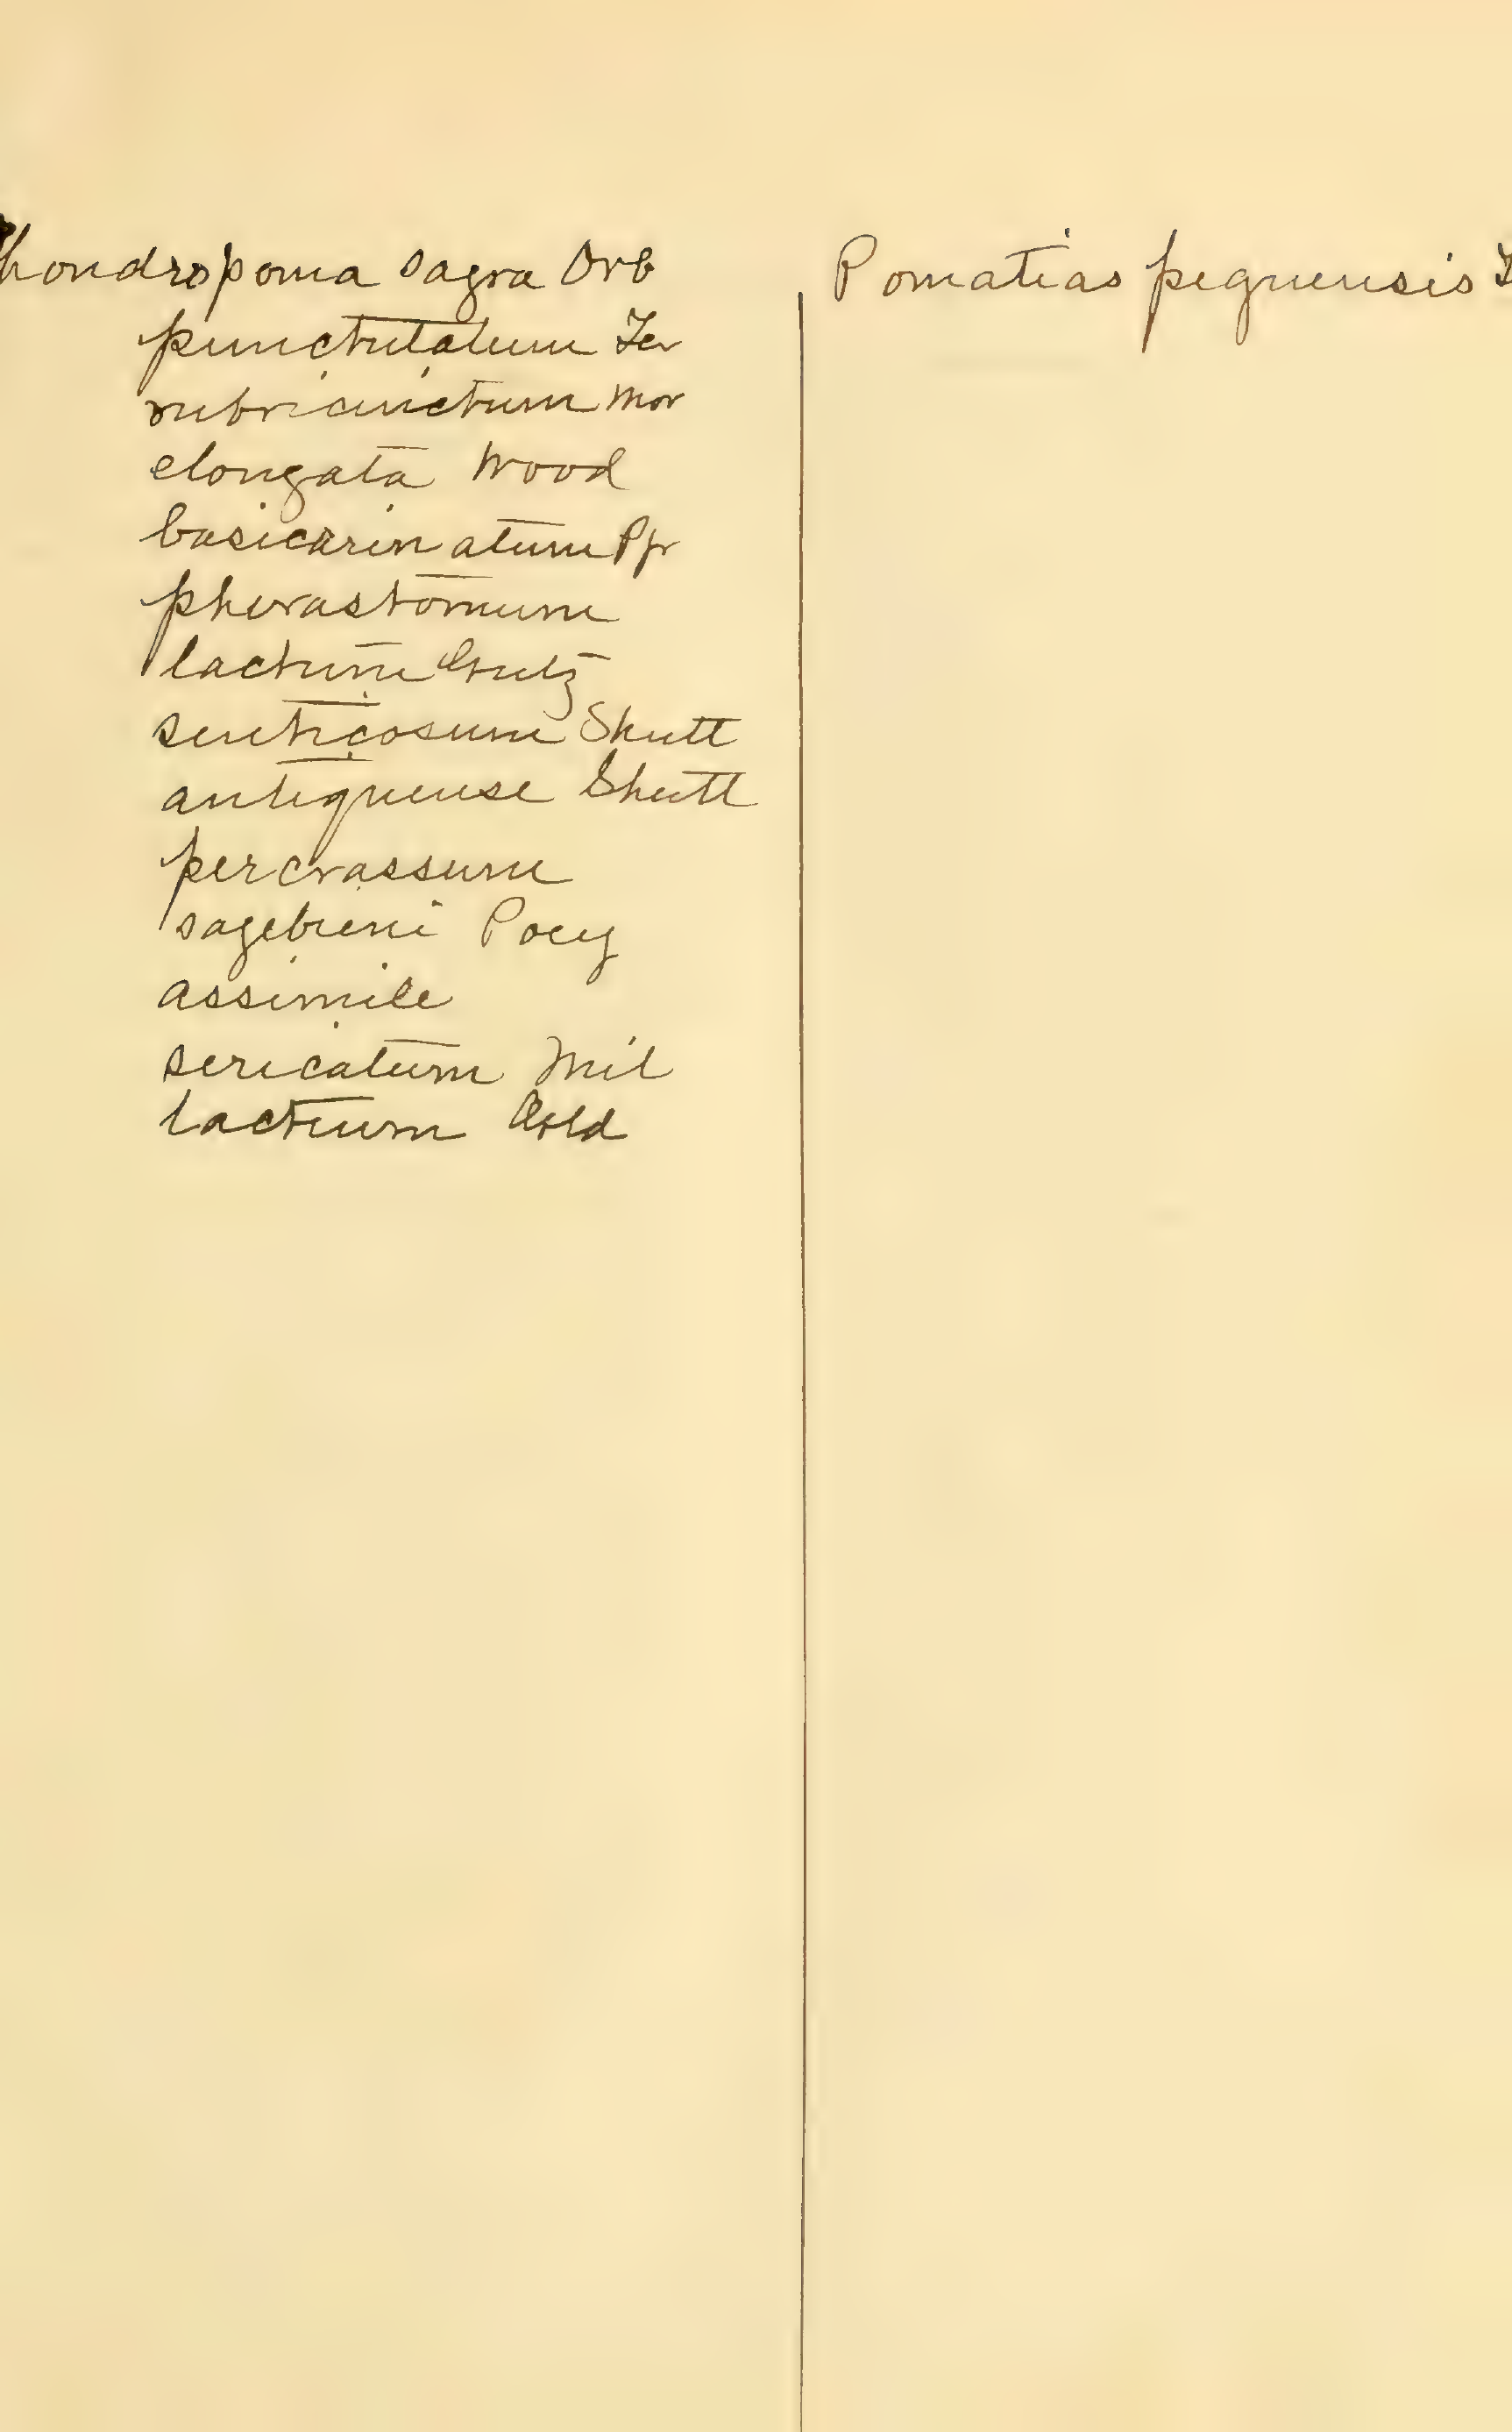 Chondropoma sagra Orb
punctulatum
rubricinctum Mor
elongata Wood
basicarinatum Pfr
pherastomum
lactum Gutz
senticosum Shutt
antiguense Shutt
percrassum
sagebieni Poey
assimile
sericatum Mil
lactium
Pomatias peguensis